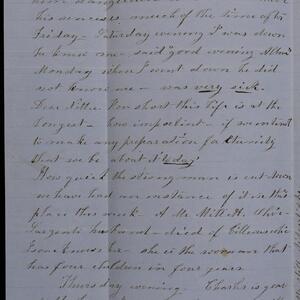 his senses, much of the time after
Friday - Saturday evening I was down
he knew me - said good evening
Monday when I went down he did
not know me - was very sick.
Dear Nettie How short this life is at the
longest - how important - if we intend
to make any preparation for Eternity
that we be about it "to day"
How quick the strong man is cut down
we have had an instance of it in this
place this week. A Mr.
Sargents husband - died of
know her - she is the woman that
has four children in four years
Thursday evening. Charlie is gone